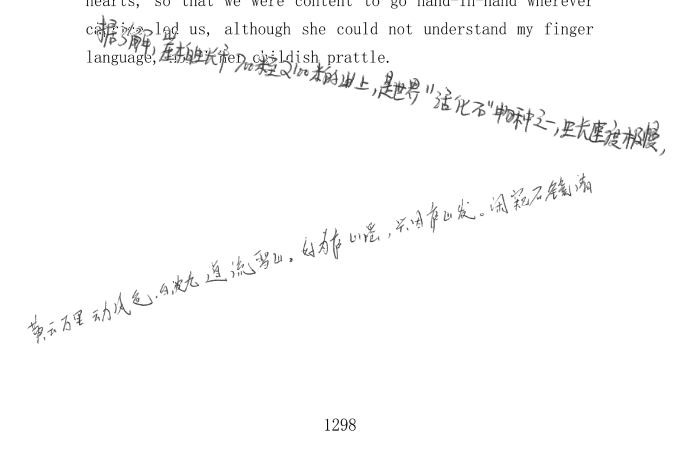 hearts, so that we were content to go hand-in-hand wherever
led us, although she could not understand my finger
language, her childish prattle.
据了解, 生长于 700米至2100米的山上,是世界"活化石"物种之一,生长速度极慢,
黄云万里动风色.白波九道流雪山。好为庐山谣,兴因庐山发。闲窥石镜清
1298